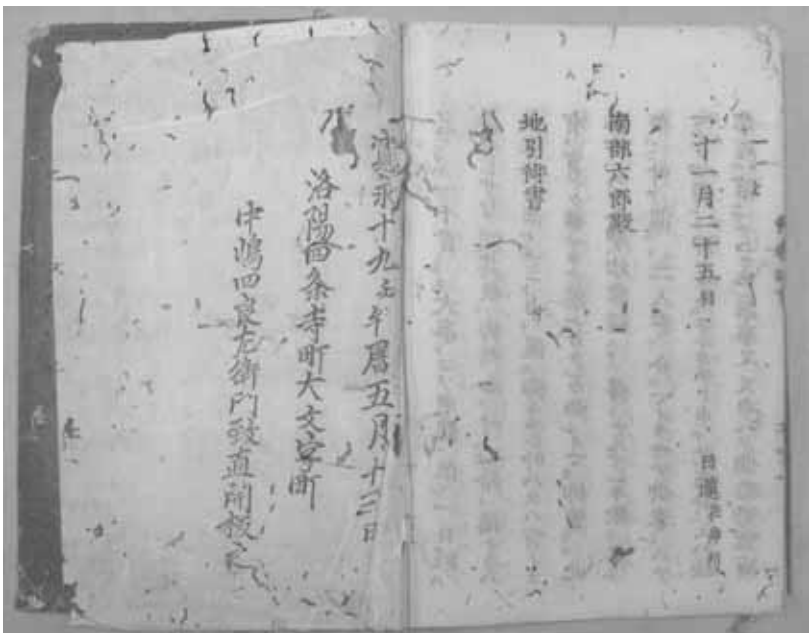 十一月二十五日 日蓮在御判
南部六郎殿
地引御書
寛永十九壬午暦五月十三日
洛陽四条寺町大文字町
中嶋四良左衛門政直開板之